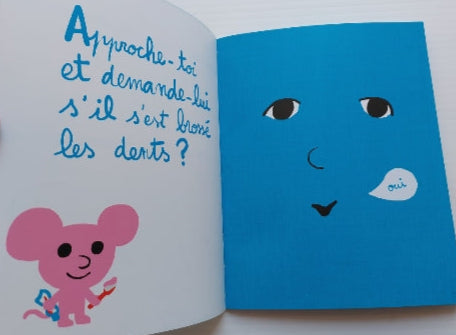 Approche-toi
et demande-lui
s'il s'est brossé
les dents ?
oui